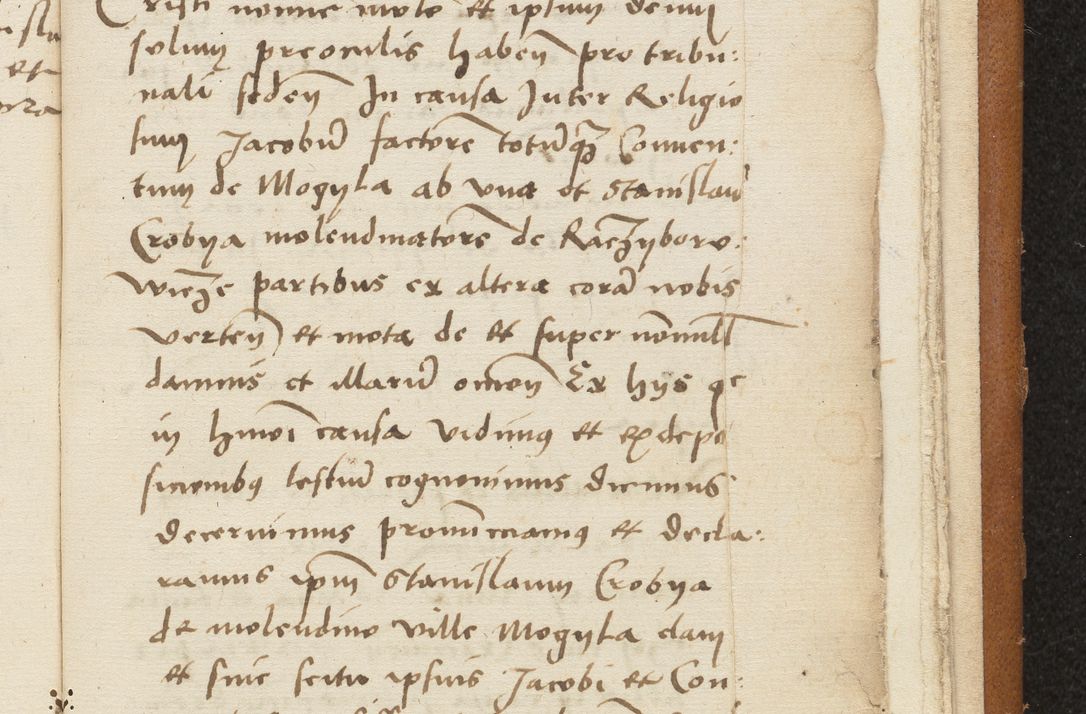 isla
et
Cristi nomine invocato et ipsum deum
solum preoculis haben pro tribu:
nali seden In causa Inter Religio
sum Jacobu factore totuqz Conven:
tum de Mogyla ab una et Stanislau
Crobya molendinatore de Raczyboro:
wicze partibus ex altera cora nobis
verten et mota de et super nonnull
damnis et illaru omen Ex hys qe
in hmoi causa vidimus et ex depo
sicionibus testiu cognovimus dicimus
decernimus pronunciamus et decla:
ramus ipm Stanislaum Crobya
de molendino ville Mogyla clam
et sine scitu ipsius Jacobi et Con: